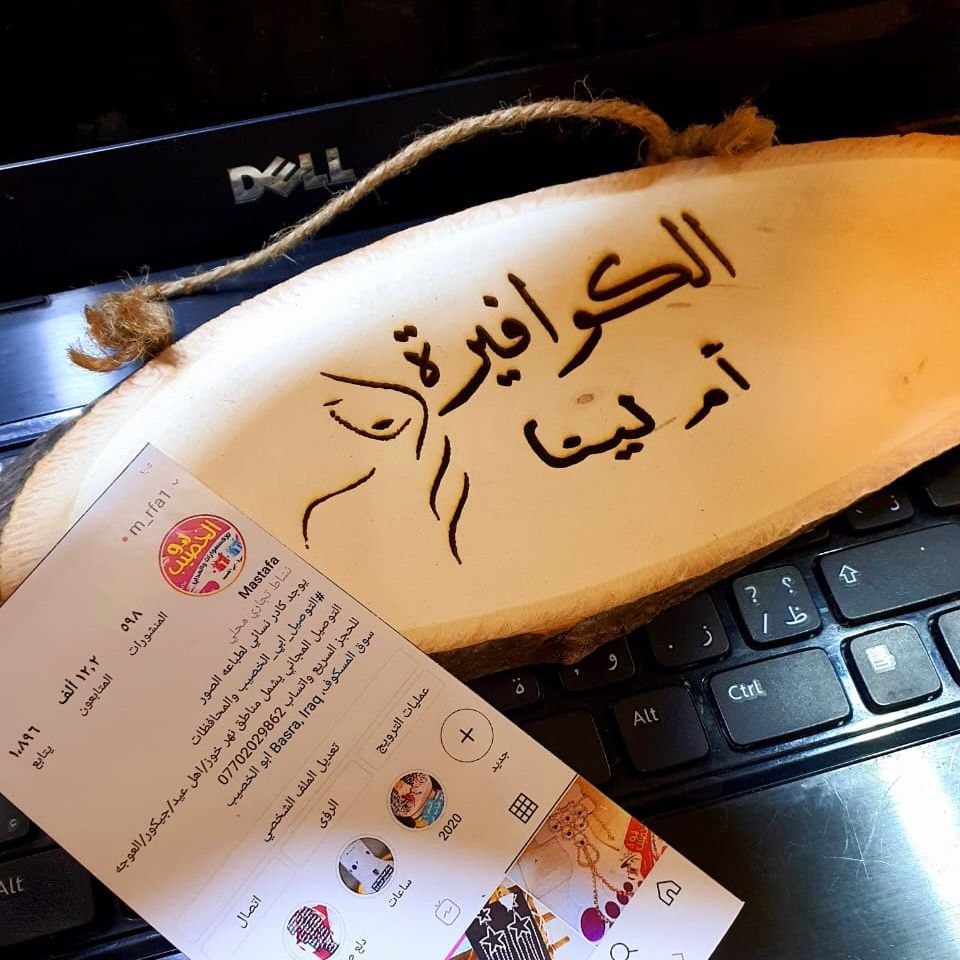 DELL
الكوافيرة
أم لينا
m_rfa1
ابو الخصيب
٥٩٨
المنشورات
١٢,٢ ألف
المتابعون
١٠٨٩٦
يتابع
Mastafa
نشاط تجاري محلي
يوجد كادر نسائي لطباعه الصور
#التوصيل_ابي_الخصيب والمحافظات
التوصيل المجاني يشمل مناطق نهر خوز/اهل عيد/جيكور/العوجه
للحجز السريع واتساب 07702029862
سوق المسكوف, Basra, Iraq ابو الخصيب
تعديل الملف الشخصي
عمليات الترويج
الرؤى
اتصال
جديد
2020
ساعات
Alt
Ctrl
Alt
؟
ظ
ز
و
ة
ر